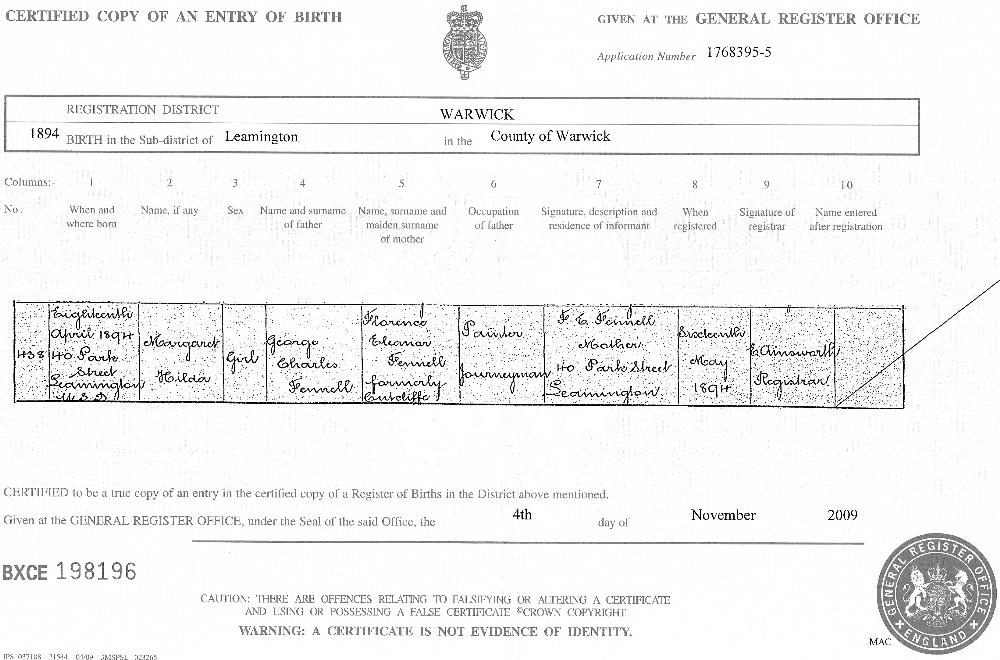 CERTIFIED COPY OF AN ENTRY OF BIRTH
GIVEN AT THE GENERAL REGISTER OFFICE
Application Number 1768395-5
REGISTRATION DISTRICT WARWICK
1894 BIRTH in the Sub-district of Leamington in the County of Warwick
Columns:- 1 2 3 4 5 6 7 8 9 10
No. When and where born
Name, if any
Sex
Name and surname of father
Name, surname and maiden surname of mother
Occupation of father
Signature, description and residence of informant
When registered
Signature of registrar
Name entered after registration
438
Eighteenth
April 1894
40 Park
Street
Leamington
U.S.D.
Margaret
Hilda
Girl
George
Charles
Fennell
Florence
Eleanor
Fennell
formerly
Cutcliffe
Painter
Journeyman
F. E. Fennell
Mother
40 Park Street
Leamington
Sixteenth
May
1894
E Ainsworth
Registrar
CERTIFIED to be a true copy of an entry in the certified copy of a Register of Births in the District above mentioned.
Given at the GENERAL REGISTER OFFICE, under the Seal of the said Office, the 4th day of November 2009
BXCE 198196
CAUTION: THERE ARE OFFENCES RELATING TO FALSIFYING OR ALTERING A CERTIFICATE
AND USING OR POSSESSING A FALSE CERTIFICATE ©CROWN COPYRIGHT
WARNING: A CERTIFICATE IS NOT EVIDENCE OF IDENTITY.
GENERAL REGISTER OFFICE
ENGLAND
MAC